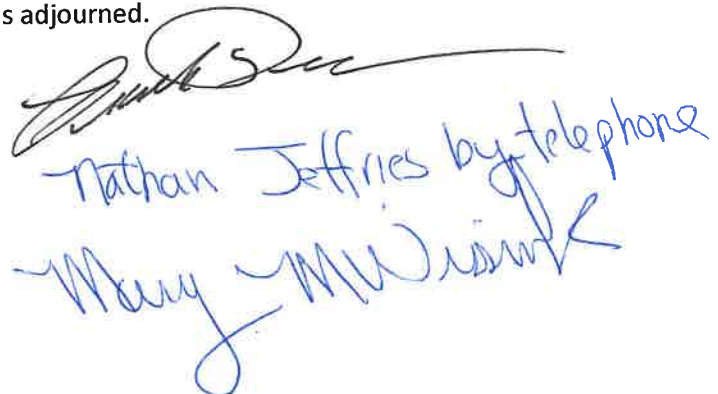 s adjourned.
Nathan Jeffries by telephone
Mary M Wissink